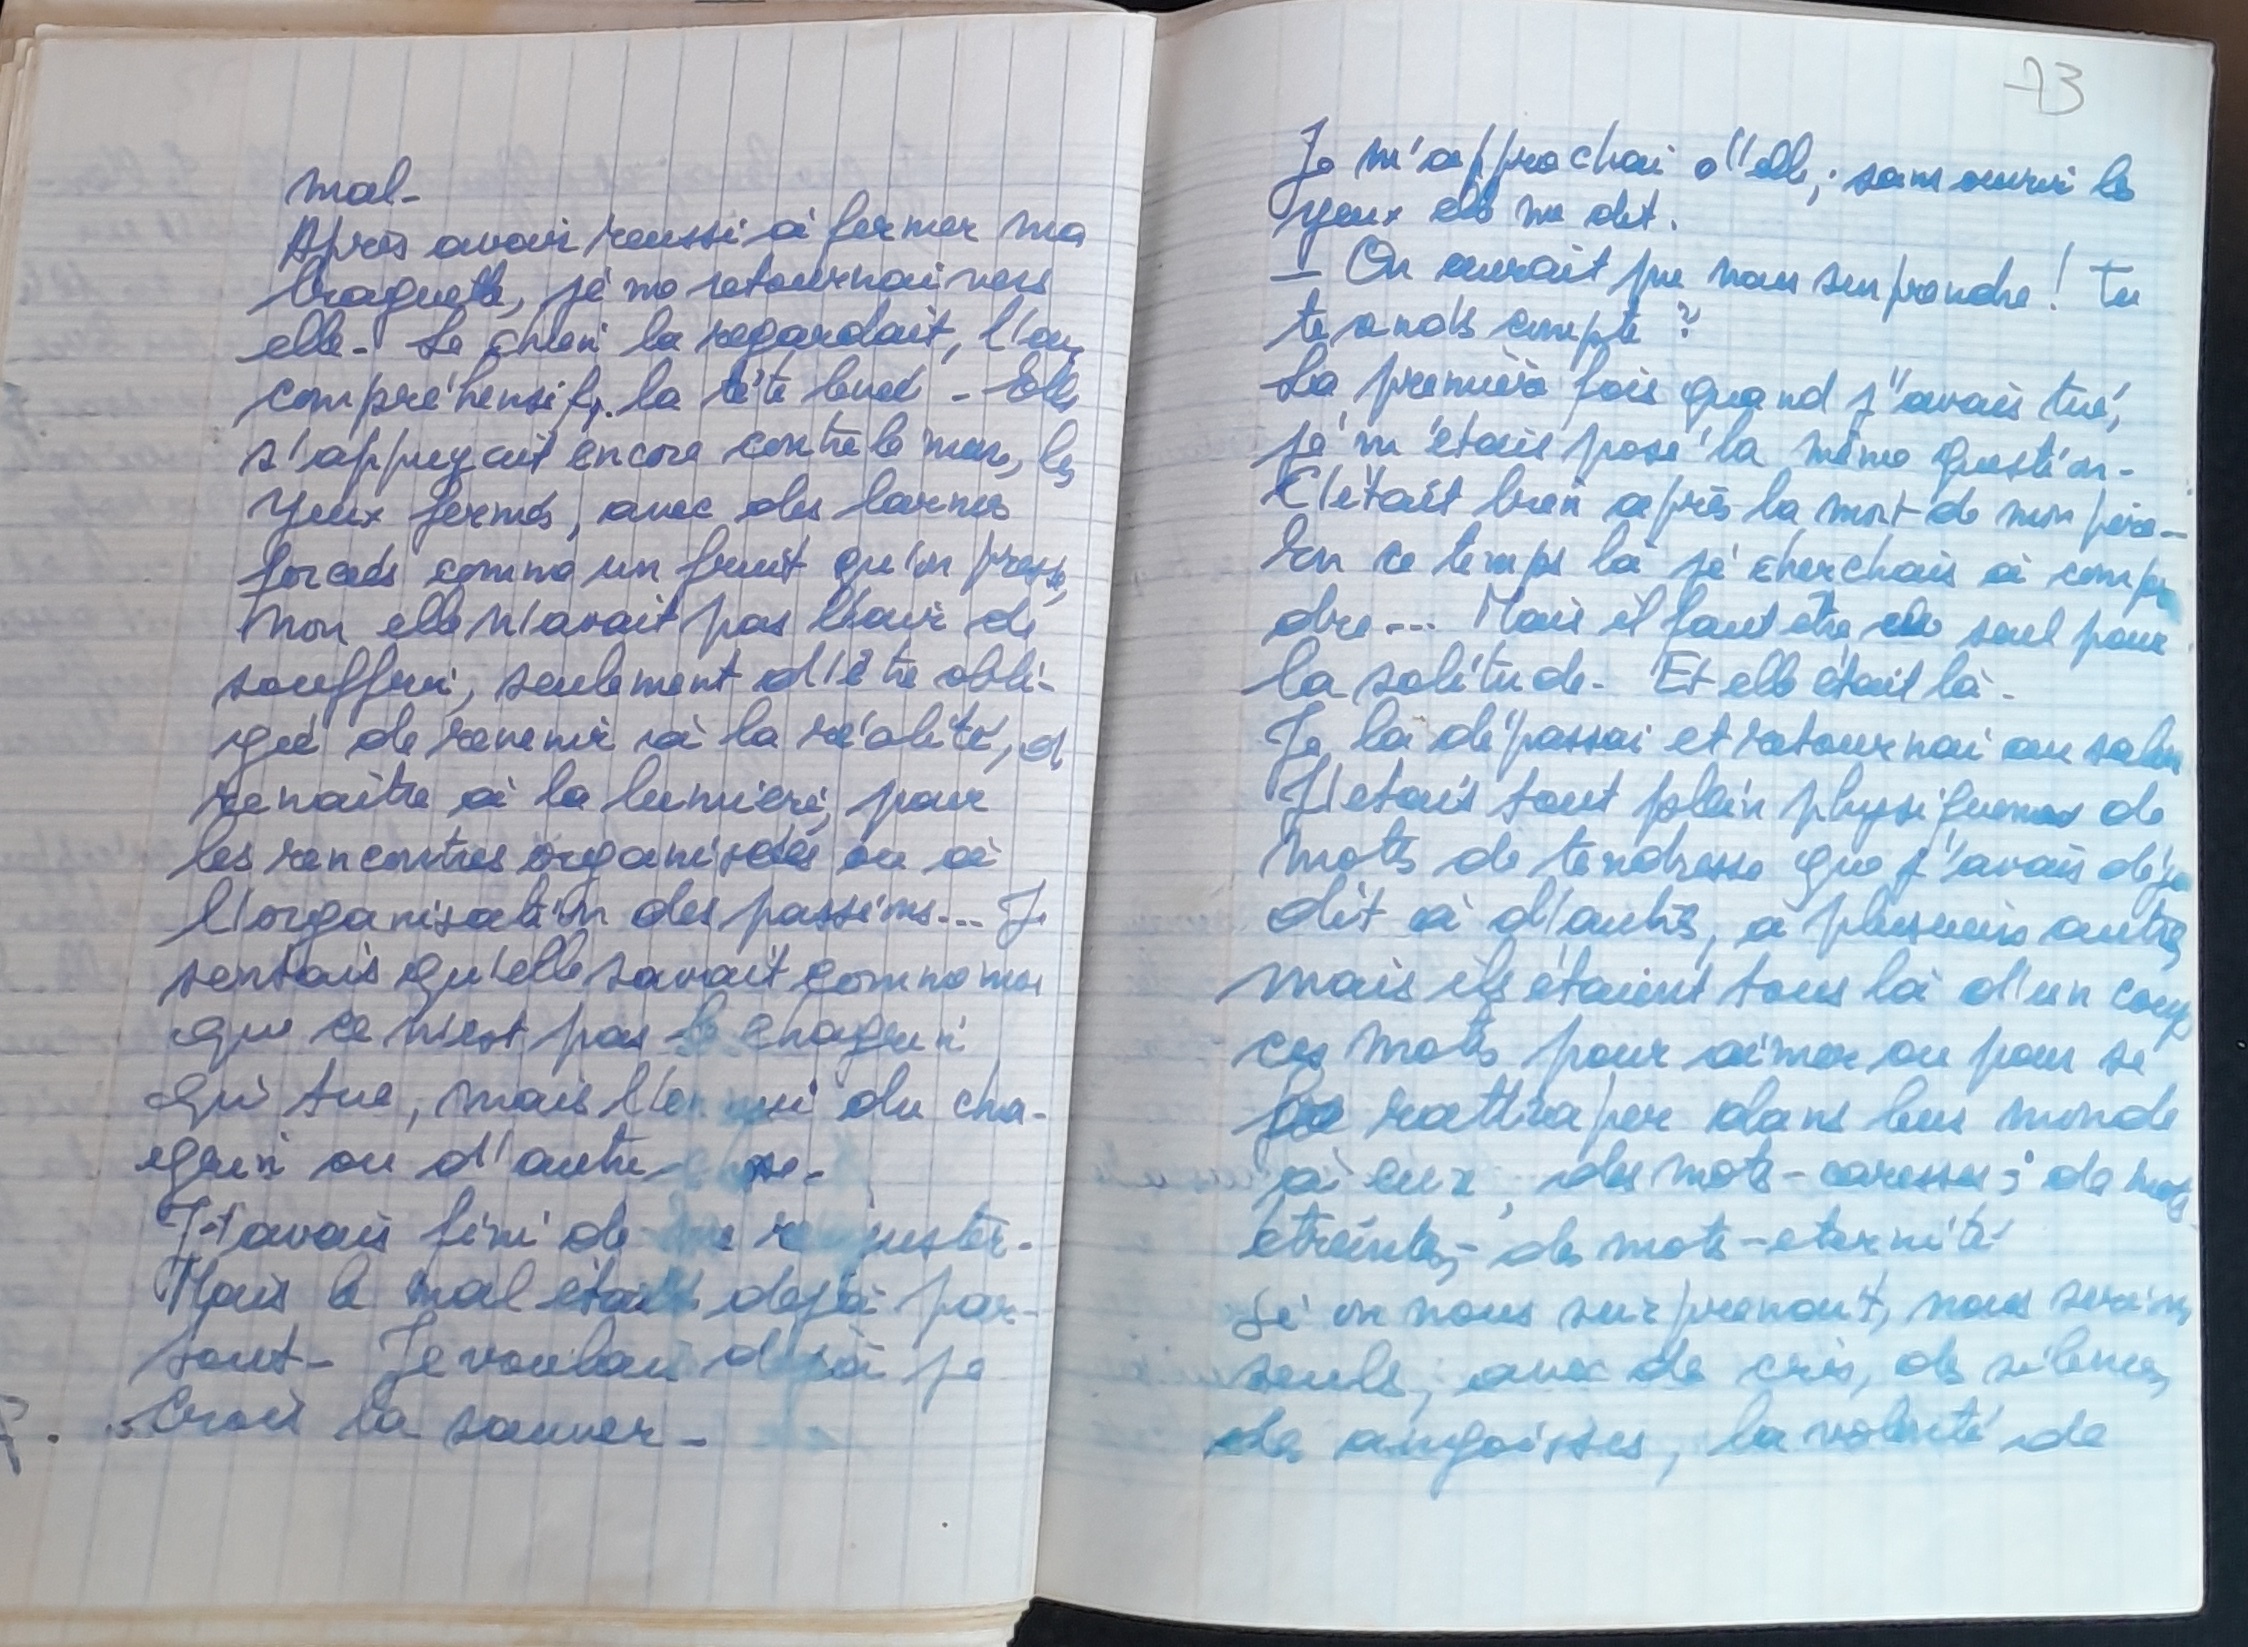 mal -
Après avoir reussi à fermer ma
braguette, je me retournai vers
elle - Le chien la regardait, l'air
compréhensif, la tête levée - Elle
s'appuyait encore contre le mur, les
yeux fermés, avec des larmes
forcées comme un fruit qu'on presse,
non elle n'avait pas l'air de
souffrir, seulement d'être obli-
gée de revenir à la réalité, de
renaître à la lumière, pour
les rencontres organisées ou à
l'organisation des passions... Je
sentais qu'elle savait comme moi
que ce n'est pas le chagrin
qui tue, mais l'ennui du cha-
grin ou d'autre
J'avais fini de me rajuster -
Mais le mal était dejà par-
tout - Je voulais dejà je
crois la sauver -
73
Je m'approchai d'elle, sans ouvrir les
yeux elle me dit.
— On aurait pu nous surprendre ! Tu
te rends compte ?
La première fois quand j'avais tué,
je m'étais posé la même question -
C'était bien après la mort de mon père -
En ce temps là je cherchais à compren
dre... Mais il faut être seul pour
la solitude - Et elle était là -
Je la dépassai et retournai au salon
J'étais tout plein physiquement de
mots de tendresse que j'avais déjà
dit à d'autres, à plusieurs autres
mais ils étaient tous là d'un coup
ces mots pour aimer ou pour se
rattraper dans leur monde
à eux, des mots-caresses, de mots
étreintes, - de mots-eternité
Si on nous surprenait, nous serions
seuls, avec de cris, de silences,
de angoisses, la volonté de